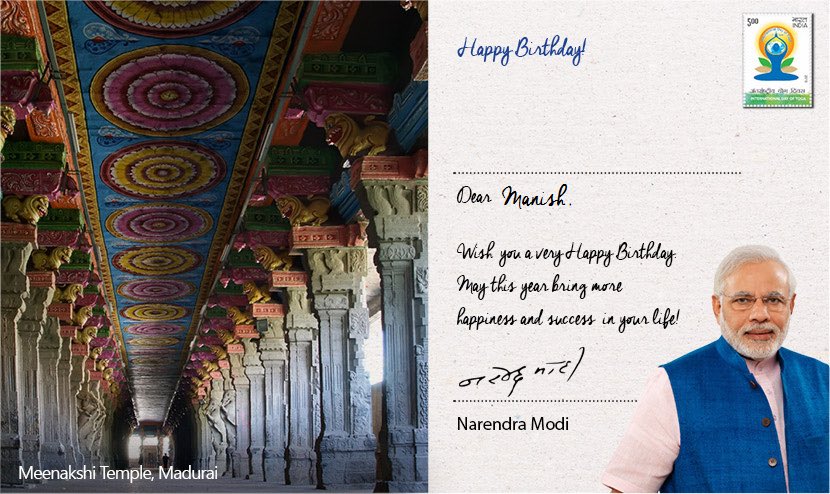 Happy Birthday!
5.00
भारत
INDIA
अंतर्राष्ट्रीय योग दिवस
INTERNATIONAL DAY OF YOGA
Dear Manish,
Wish you a very Happy Birthday.
May this year bring more
happiness and success in your life!
नरेन्द्र मोदी
Narendra Modi
Meenakshi Temple, Madurai